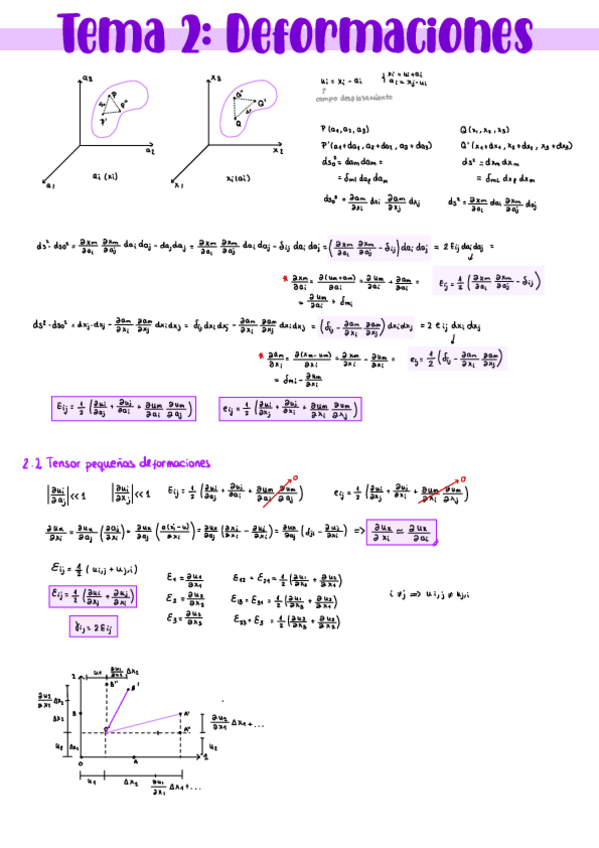 Tema 2: Deformaciones
a₃
x₃
P
P'
P''
Q
Q'
Q''
a₂
x₂
a₁
x₁
ai (xi)
xi (ai)
ui = xi - ai
campo desplazamiento
P (a₁, a₂, a₃)
Q (x₁, x₂, x₃)
P' (a₁ + da₁, a₂ + da₂, a₃ + da₃)
Q' (x₁ + dx₁, x₂ + dx₂, x₃ + dx₃)
ds₀² = dam dam =
ds² = dxm dxm
ds₀² = ∂am/∂xi dxi ∂am/∂xj dxj
ds² = ∂xm/∂ai dai ∂xm/∂aj daj
ds² - ds₀² = ∂xm/∂ai ∂xm/∂aj dai daj - daj daj = ∂xm/∂ai ∂xm/∂aj dai daj - δij dai daj = (∂xm/∂ai ∂xm/∂aj - δij) dai daj = 2 Eij dai daj =
* ∂xm/∂ai = ∂(um + am)/∂ai = ∂um/∂ai + ∂am/∂ai =
Eij = 1/2 (∂xm/∂ai ∂xm/∂aj - δij)
= ∂um/∂ai + δmi
ds² - ds₀² = dxj dxj - ∂am/∂xi ∂am/∂xj dxi dxj = δij dxi dxj - ∂am/∂xi ∂am/∂xj dxi dxj = (δij - ∂am/∂xi ∂am/∂xj) dxi dxj = 2 eij dxi dxj
* ∂am/∂xi = ∂(xm - um)/∂xi = ∂xm/∂xi - ∂um/∂xi =
eij = 1/2 (δij - ∂am/∂xi ∂am/∂xj)
= δmi - ∂um/∂xi
Eij = 1/2 (∂ui/∂aj + ∂uj/∂ai + ∂um/∂ai ∂um/∂aj)
eij = 1/2 (∂ui/∂xj + ∂uj/∂xi - ∂um/∂xi ∂um/∂xj)
2.2 Tensor pequeñas deformaciones
|∂ui/∂aj| << 1
|∂ui/∂xj| << 1
Eij = 1/2 (∂ui/∂aj + ∂uj/∂ai + ∂um/∂ai ∂um/∂aj) 0
eij = 1/2 (∂ui/∂xj + ∂uj/∂xi + ∂um/∂xi ∂um/∂xj) 0
Eij = 1/2 (ui,j + uj,i)
Eij = 1/2 (∂ui/∂xj + ∂uj/∂xi)
γij = 2 Eij
E₁ = ∂u₁/∂x₁
E₁₂ = E₂₁ = 1/2 (∂u₁/∂x₂ + ∂u₂/∂x₁)
E₂ = ∂u₂/∂x₂
E₁₃ = E₃₁ = 1/2 (∂u₁/∂x₃ + ∂u₃/∂x₁)
E₃ = ∂u₃/∂x₃
i ≠ j ⟹ ui,j ≠ uj,i
2
B''
B'
B
A'
A''
O
A
1
u₁
Δx₂
u₂
∂u₂/∂x₁ Δx₁ + ...
u₂
u₁
∂u₁/∂x₁ Δx₁ + ...